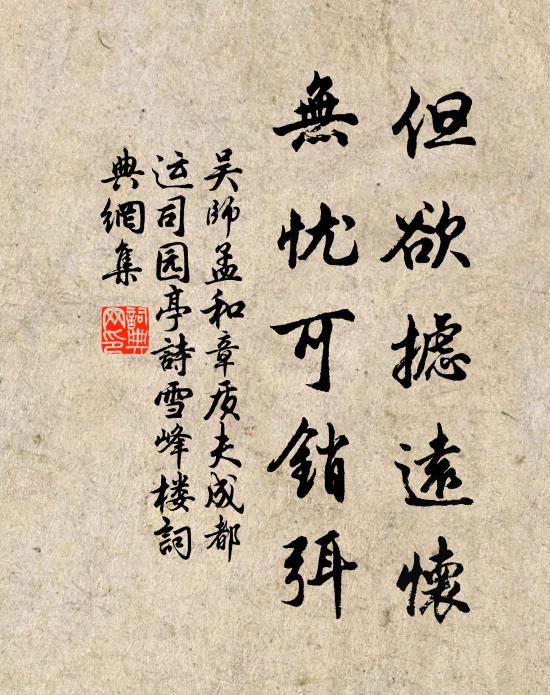 但欲摅遠懷
無忧可銷弭
吴師孟和章质夫成都
运司园亭詩雪峰楼詞
典網集
詞典
网印